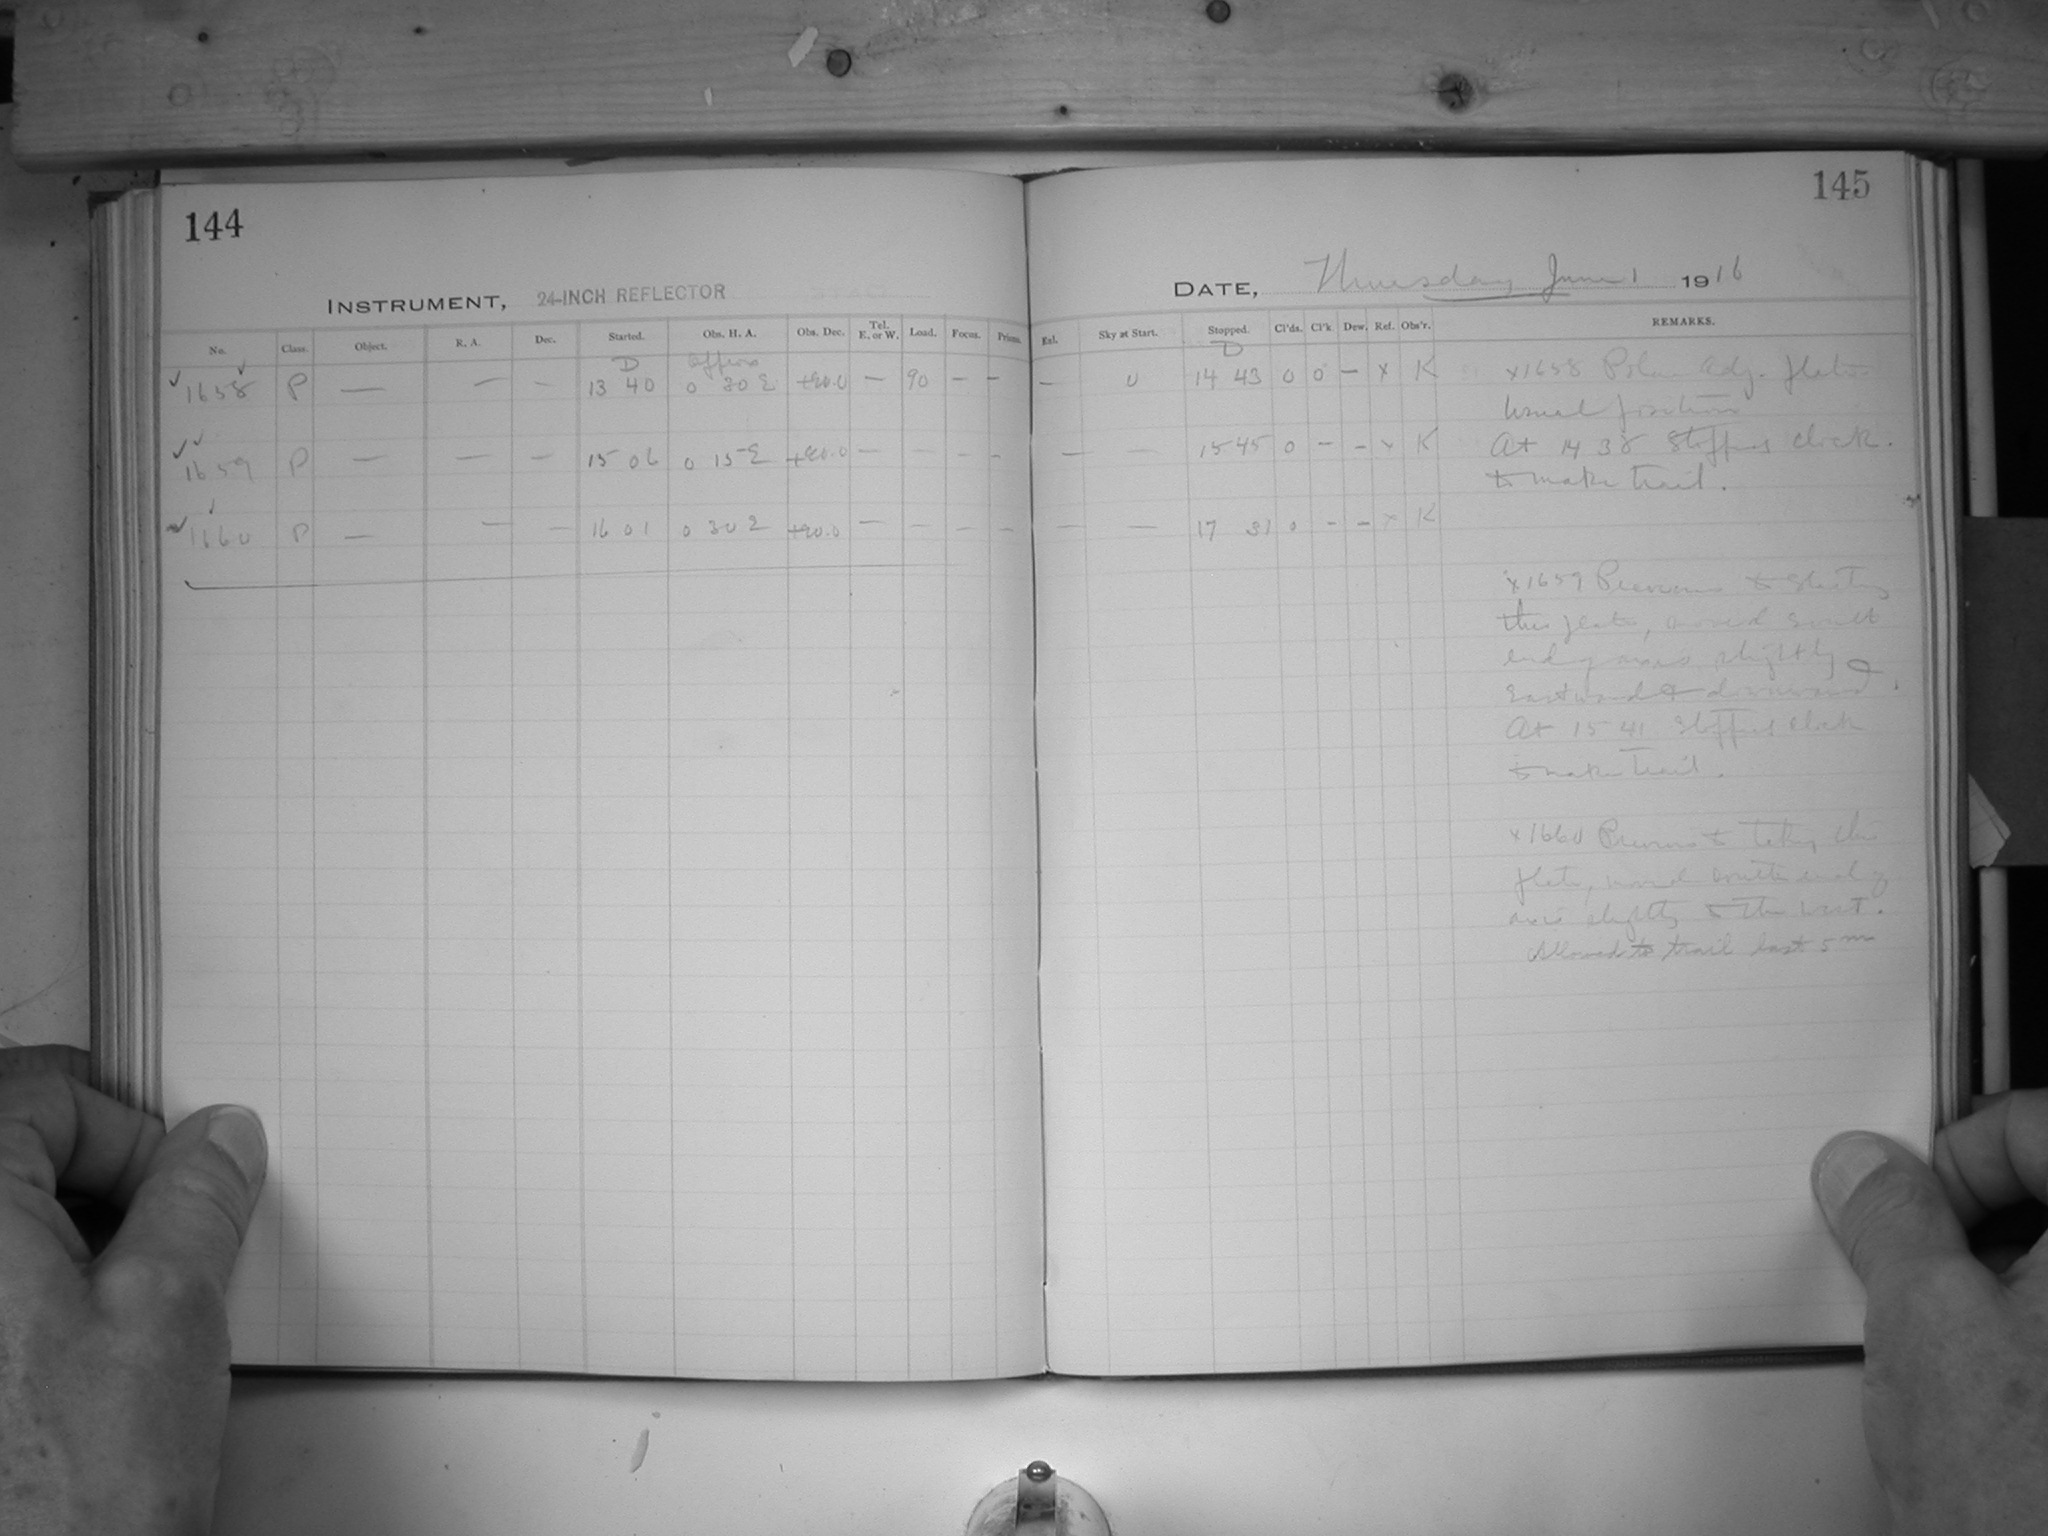 144
145
INSTRUMENT, 24-INCH REFLECTOR
DATE, Thursday June 1 1916
No. Class. Object. R. A. Dec. Started. Obs. H. A. Obs. Dec. Tel. E. or W. Load. Focus. Prisms. Eal. Sky at Start. Stopped. Cl'ds. Cl'k Dew. Ref. Obs'r. REMARKS.
D D
1658 P — — — 13 40 0 30 E +90.0 — 90 — — — 0 14 43 0 0 — x K
1659 P — — — 15 06 0 15 E +90.0 — — — — — — 15 45 0 — — x K
1660 P — — — 16 01 0 30 E +90.0 — — — — — — 17 31 0 — — x K
x1658 Polar Adj. plate
Usual position
At 14 38 stopped clock
to make trail.
x1659 Previous to starting
this plate, moved south
end of axis slightly
Eastward & downward.
At 15 41 stopped clock
to make trail.
x1660 Previous to taking this
plate, moved south end of
axis slightly to the west.
Allowed to trail last 5 m